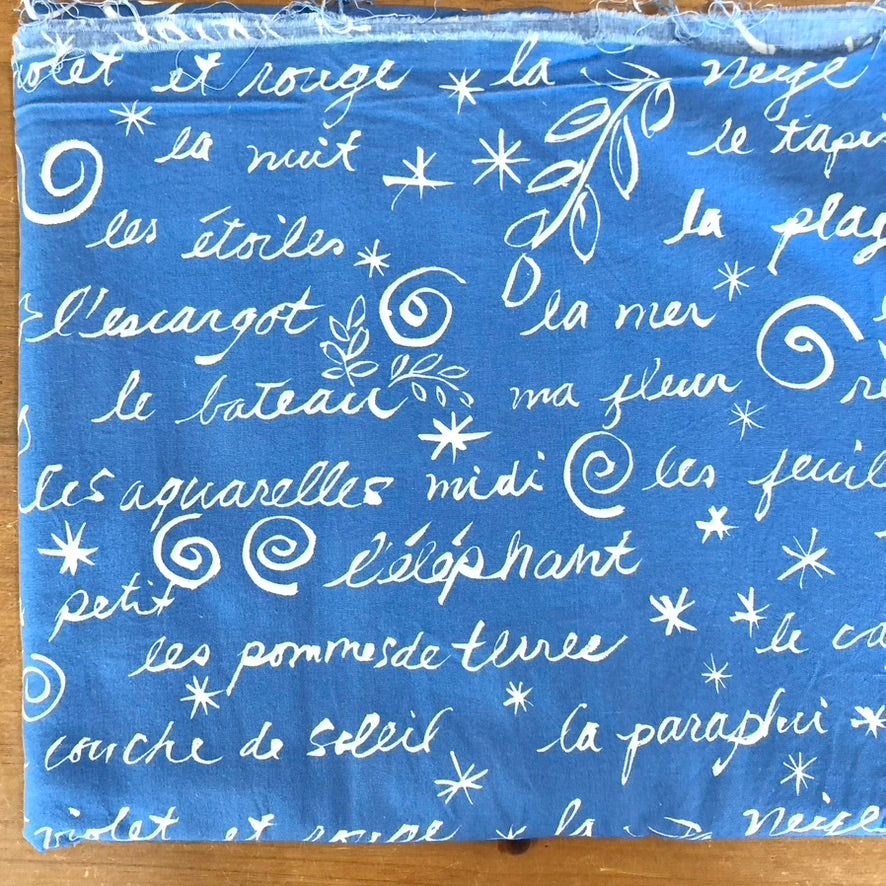 violet et rouge la neige
la nuit le tapis
les étoiles la plag
l'escargot la mer
le bateau ma fleur re
les aquarelles midi les feuil
l'éléphant
petit
les pommes de terre le ca
couche de soleil la paraplui
violet et rouge la neige